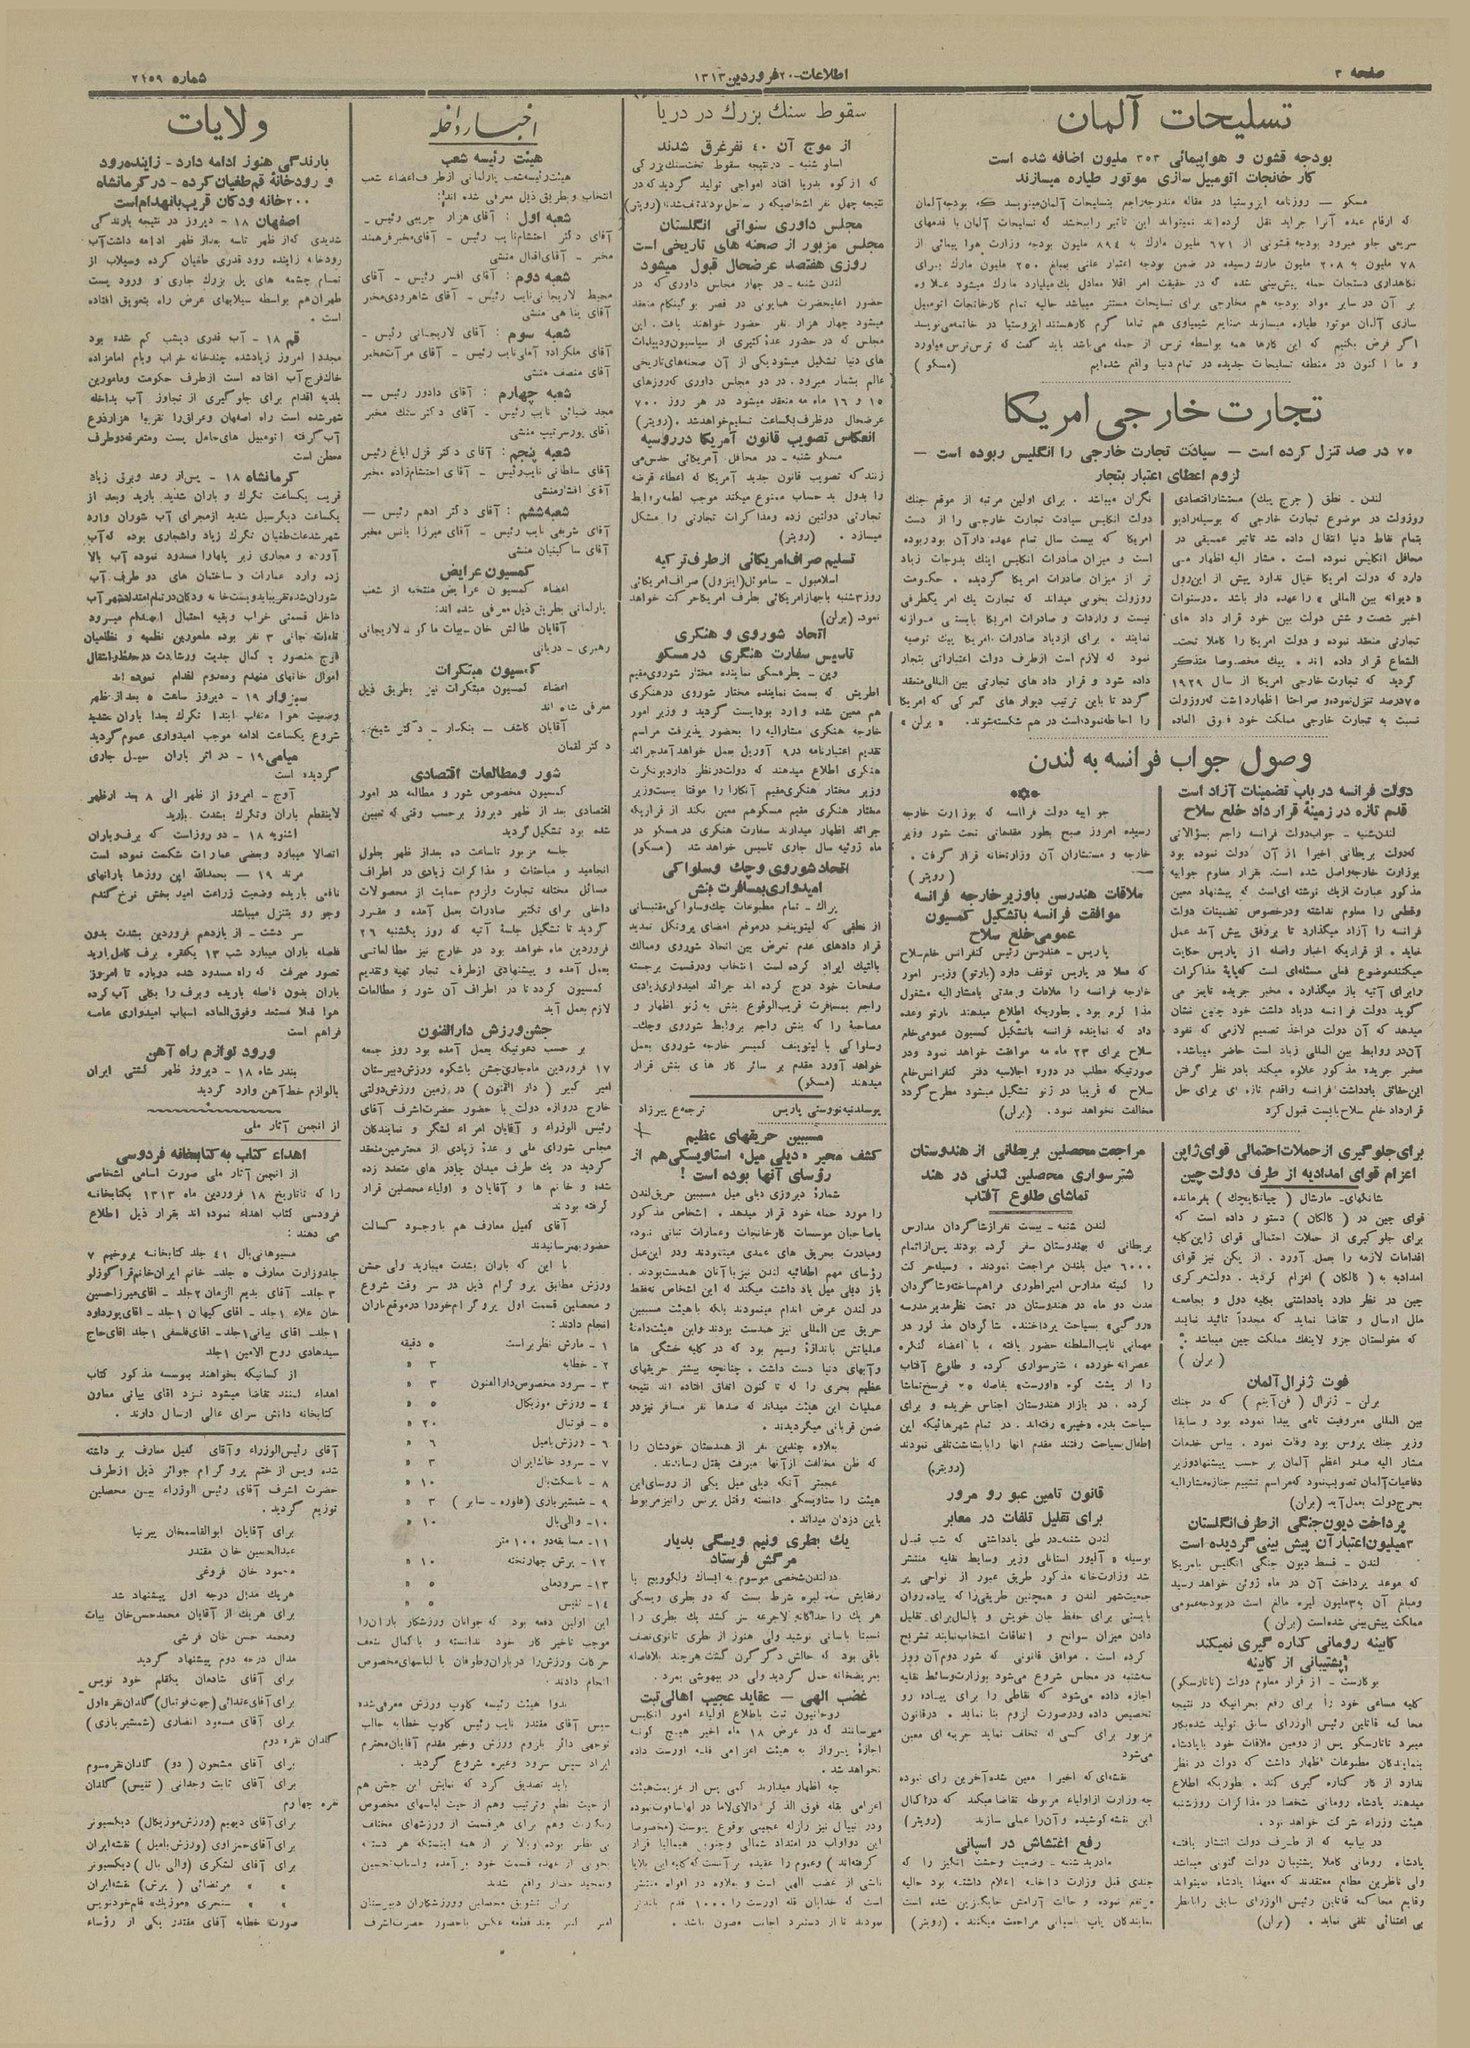 صفحه ۲
اطلاعات-۲۰فروردین ۱۳۱۳
شماره ۲۱۵۹
تسلیحات آلمان
بودجه قشون و هواپیمائی ۳۵۳ ملیون اضافه شده است
کارخانجات اتومبیل سازی موتور طیاره میسازند
مسکو – روزنامه ایزوستیا در مقاله مندرجه راجع بتسلیحات آلمان مینویسد که بودجه آلمان
که ارقام عمده آنرا جراید نقل کرده اند نمیتواند این تاثیر را نبخشد که تسلیحات آلمان با قدمهای
سریعی جلو میرود بودجه قشونی از ۶۷۱ ملیون مارک به ۸۹۴ ملیون بودجه وزارت هوا پیمائی از
۷۸ ملیون به ۲۰۸ ملیون مارک رسیده در ضمن بودجه اعتبار علنی بمبلغ ۲۵۰ ملیون مارک برای
نگاهداری دستجات حمله پیش بینی شده که در حقیقت امر اقلا معادل یک میلیارد مارک میشود علاوه
بر آن در سایر مواد بودجه هم مخارجی برای تسلیحات مستتر میباشد حالیه تمام کارخانجات اتومبیل
سازی آلمان موتور طیاره میسازند صنایع شیمیاوی هم تماما گرم کار هستند ایزوستیا در خاتمه می نویسد
اگر فرض بکنیم که این کارها همه بواسطه ترس از حمله می باشد باید گفت که ترس ترس میاورد
و ما اکنون در منطقه تسلیحات جدیده در تمام دنیا واقع شده ایم (مسکو)
تجارت خارجی امریکا
۷۵ در صد تنزل کرده است – سیادت تجارت خارجی را انگلیس ربوده است –
لزوم اعطای اعتبار بتجار
لندن – نطق (جرج پیک) مستشار اقتصادی
روزولت در موضوع تجارت خارجی که بوسیله رادیو
بتمام نقاط دنیا انتقال داده شد تاثیر عمیقی در
محافل انگلیس نموده است . مشار الیه اظهار می
دارد که دولت امریکا خیال ندارد بیش از این رول
« دیوانه بین المللی » را عهده دار باشد . در سنوات
اخیر شصت و شش دولت بین خود قرار داد های
تجارتی منعقد نموده و دولت امریکا را کاملا تحت
الشعاع قرار داده اند . پیک مخصوصا متذکر
گردید که تجارت خارجی امریکا از سال ۱۹۲۹
۷۵ درصد تنزل نموده و صراحتا اظهار داشت که روزولت
نسبت به تجارت خارجی مملکت خود فوق العاده
نگران میباشد . برای اولین مرتبه از موقع جنگ
دولت انگلیس سیادت تجارت خارجی را از دست
امریکا که بیست سال تمام عهده دار آن بود ربوده
است و میزان صادرات انگلیس اینک بدرجات زیاد
تر از میزان صادرات امریکا گردیده . حکومت
روزولت بخوبی میداند که تجارت یک امر یکطرفی
نیست و واردات و صادرات امریکا بایستی موازنه
نمایند . برای ازدیاد صادرات امریکا پیک توصیه
نمود که لازم است از طرف دولت اعتباراتی بتجار
داده شود و قرار داد های تجارتی بین المللی منعقد
گردد تا باین ترتیب دیوار های گمرکی که امریکا
را احاطه نموده است در هم شکسته شوند . « برلن »
وصول جواب فرانسه به لندن
دولت فرانسه در باب تضمینات آزاد است
قدم تازه در زمینهٔ قرار داد خلع سلاح
لندن شنبه – جواب دولت فرانسه راجع بسؤالاتی
که دولت بریطانی اخیرا از آن دولت نموده بود
بوزارت خارجه واصل شده است. بقرار معلوم جوابیه
مذکور عبارت از یک نوشته ای است که پیشنهاد معین
وقطعی را معلوم نداشته و درخصوص تضمینات دولت
فرانسه را آزاد میگذارد تا بر وفق پیش آمد عمل
نماید . از قراریکه اخبار واصله از پاریس حکایت
میکنند موضوع فعلی مسئله ای است که پایهٔ مذاکرات
را برای آتیه باز میگذارد . مخبر جریده تایمز می
گوید دولت فرانسه در یاد داشت خود چنین نشان
میدهد که آن دولت در اخذ تصمیم لازمی که نفوذ
آن در روابط بین المللی زیاد است حاضر میباشد.
مخبر جریده مذکور علاوه میکند باور نظر گرفتن
این حقایق یادداشت فرانسه را قدم تازه ای برای حل
قرارداد خلع سلاح بایست قبول کرد
جوابیه دولت فرانسه که بوزارت خارجه
رسیده امروز صبح بطور مقدماتی تحت شور وزیر
خارجه و مستشاران آن وزارتخانه قرار گرفت .
(رویتر)
ملاقات هندرسن با وزیر خارجه فرانسه
موافقت فرانسه با تشکیل کمسیون
عمومی خلع سلاح
پاریس – هندرسن رئیس کنفرانس خلع سلاح
که فعلا در پاریس توقف دارد (بارتو) وزیر امور
خارجه فرانسه را ملاقات و مدتی با مشار الیه مشغول
مذاکره بود . بطوریکه اطلاع میدهند بارتو وعده
داد که نماینده فرانسه با تشکیل کمسیون عمومی خلع
سلاح برای ۲۳ ماه مه موافقت خواهد نمود و در
صورتیکه مطلب در دوره اجلاسیه دفتر کنفرانس خلع
سلاح که قریبا در ژنو تشکیل میشود مطرح گردد
مخالفت نخواهد نمود. (برلن)
برای جلوگیری از حملات احتمالی قوای ژاپن
اعزام قوای امدادیه از طرف دولت چین
شانگهای– مارشال (چیانکایچک) بفرمانده
قوای چین در (کالکان) دستور داده است که
برای جلوگیری از حملات احتمالی قوای ژاپن کلیه
اقدامات لازمه را بعمل آورد . از پکن نیز قوای
امدادیه به (کالکان) اعزام گردید . دولت مرکزی
چین در نظر دارد یادداشتی بکلیه دول و بجامعه
ملل ارسال و تقاضا نماید که مجدداً تائید نمایند
که مغولستان جزو لاینفک مملکت چین میباشد .
(برلن)
فوت ژنرال آلمان
برلن – ژنرال (فن آینم) که در جنگ
بین المللی معروفیت نامی پیدا نموده بود و سابقا
وزیر جنگ پروس بود وفات نمود . بپاس خدمات
مشار الیه صدر اعظم آلمان بر حسب پیشنهاد وزیر
دفاعیات آلمان تصویب نمود که مراسم تشییع جنازه مشار الیه
بخرج دولت بعمل آید (برلن)
پرداخت دیون جنگی از طرف انگلستان
۳ میلیون اعتبار آن پیش بینی گردیده است
لندن – قسط دیون جنگی انگلیس بامریکا
که موعد پرداخت آن در ماه ژوئن خواهد رسید
ومبلغ آن به ۳ ملیون لیره بالغ است در بودجه عمومی
مملکت پیش بینی شده است (برلن)
کابینه رومانی کناره گیری نمیکند
پشتیبانی از کابینه
بوکارست – از قرار معلوم دولت (تاتارسکو)
کلیه مساعی خود را برای رفع بحرانیکه در نتیجه
محاکمه قاتلین رئیس الوزرای سابق تولید شده بکار
میبرد تاتارسکو پس از دومین ملاقات خود با پادشاه
بنمایندگان مطبوعات اظهار داشت که دولت در نظر
ندارد از کار کناره گیری کند . بطوریکه اطلاع
میدهند پادشاه رومانی شخصا در مذاکرات روز شنبه
هیئت وزراء شرکت خواهد نمود .
در بیانیه که از طرف دولت انتشار یافته
پادشاه رومانی کاملا پشتیبان دولت کنونی میباشد
ولی ناظرین مطلع معتقدند که معهذا پادشاه نمیتواند
وقایع محاکمه قاتلین رئیس الوزرای سابق را بانظر
بی اعتنائی تلقی نماید . (برلن)
مراجعت محصلین بریطانی از هندوستان
شتر سواری محصلین لندنی در هند
تماشای طلوع آفتاب
لندن شنبه – بیست نفر از شاگردان مدارس
بریطانی که بهندوستان سفر کرده بودند پس از اتمام
۶۰۰۰ میل بلندن مراجعت نمودند . وسیله حرکت
را کمیته مدارس امپراطوری فراهم ساخته و شاگردان
مدت دو ماه در هندوستان در تحت نظر مدیر مدرسه
«روگبی» بسیاحت پرداختند. شاگردان مذکور در
مهمانی نایب السلطنه حضور یافته ، با اعضاء کنگره
عصرانه خورده ، شتر سواری کرده و طلوع آفتاب
را از پشت کوه «اورست» بفاصله ۳۵ فرسخ تماشا
کرده . در بازار هندوستان اجناس خریده و برای
سیاحت بدره «خیبر» رفته اند . در تمام شهر هائیکه این
اطفال بسیاحت رفتند مقدم آنها را با بشاشت تلقی نمودند
(رویتر)
قانون تامین عبور و مرور
برای تقلیل تلفات در معابر
لندن شنبه– در طی یادداشتی که شب قبل
بوسیله « آلیور استانلی وزیر وسایط نقلیه منتشر
شد وزارتخانه مذکور طریق عبور از نواحی پر
جمعیت شهر لندن و همچنین طریقی را که پیاده روان
بایستی برای حفظ جان خویش و بالمآل برای تقلیل
دادن میزان سوانح و اتفاقات انتخاب نمایند تشریح
کرده است . موافق قانونی که شور دوم آن روز
سه شنبه در مجلس شروع می شود بوزارت وسائط نقلیه
اجازه داده می شود که نقاطی را برای پیاده رو
تخصیص داده و در صورت لزوم بنا نماید . در قانون
مزبور برای کسی که تخلف نماید جریمه ای معین
می شود
نقشه ای که اخیرا معین شده آخرین رای نبوده
چه وزارت از اولیاء مربوطه تقاضا میکند که در اکمال
این نقشه کوشیده و آن را عملی سازند (رویتر)
رفع اغتشاش در اسپانی
مادرید شنبه – وضعیت وحشت انگیز را که
چندی قبل وزارت داخله اعلام داشته بود حالیه
مرتفع نموده و حالت آرامش جایگزین شده است
نمایندگان پاپ باسپانی مراجعت میکنند . (رویتر)
سقوط سنک بزرک در دریا
از موج آن ۴۰ نفر غرق شدند
اسلو شنبه – در نتیجه سقوط تخته سنک بزرگی
که از کوه بدریا افتاد امواجی تولید گردید که در
نتیجه چهل نفر اشخاصیکه در ساحل بودند تلف شدند(رویتر)
مجلس داوری سنواتی انگلستان
مجلس مزبور از صحنه های تاریخی است
روزی هفتصد عرضحال قبول میشود
لندن شنبه – در چهار مجلس داوری که در
حضور اعلیحضرت همایونی در قصر بوکینگام منعقد
میشود چهار هزار نفر حضور خواهند یافت . این
مجلس که در حضور عدهٔ کثیری از سیاسیون و دیپلمات
های دنیا تشکیل میشود یکی از آن صحنه های تاریخی
عالم بشمار میرود . در دو مجلس داوری که روزهای
۱۵ و ۱۶ ماه مه منعقد میشود در هر روز ۷۰۰
عرضحال در ظرف یکساعت تسلیم خواهد شد . (رویتر)
انعکاس تصویب قانون آمریکا در روسیه
مسکو شنبه – در محافل آمریکائی حدس می
زنند که تصویب قانون جدید آمریکا که اعطاء قرضه
را بدول بد حساب ممنوع میکند موجب لطمه روابط
تجارتی دولتین زده ومذاکرات تجارتی را مشکل
میسازد . (رویتر)
تسلیم صراف امریکائی از طرف ترکیه
اسلامبول – ساموئل(اینزول) صراف امریکائی
روز ۳ شنبه با جهاز امریکائی بطرف امریکا حرکت خواهد
نمود. (برلن)
اتحاد شوروی و هنگری
تاسیس سفارت هنگری در مسکو
وین – پطرفسکی نماینده مختار شوروی مقیم
اطریش که بسمت نماینده مختار شوروی در هنگری
هم معین شده وارد بوداپست گردید و وزیر امور
خارجه هنگری مشار الیه را بحضور پذیرفت مراسم
تقدیم اعتبارنامه در ۹ آوریل بعمل خواهد آمد جرائد
هنگری اطلاع میدهند که دولت در نظر دارد یونکرت
وزیر مختار هنگری مقیم آنکارا را موقتا بسمت وزیر
مختار هنگری مقیم مسکو هم معین بکند از قراریکه
جرائد اظهار میدارند سفارت هنگری در مسکو در
ماه ژوئیه سال جاری تاسیس خواهد شد (مسکو)
اتحاد شوروی و چک و سلواکی
امیدواری بمسافرت بنش
پراک – تمام مطبوعات چک و سلواکی مقتبساتی
از نطقی که لیتوینف در موقع امضای پروتکل تمدید
قرار دادهای عدم تعرض بین اتحاد شوروی وممالک
بالتیک ایراد کرده است انتخاب و در قسمت برجسته
صفحات خود درج کرده اند جرائد امیدواری زیادی
راجع بمسافرت قریب الوقوع بنش به ژنو اظهار و
مصاحبهٔ را که بنش راجع بروابط شوروی و چک
وسلواکی با لیتوینف کمیسر خارجه شوروی بعمل
خواهد آورد مقدم بر سائر کار های بنش قرار
میدهند (مسکو)
پوسلدنیه نووستی پاریس ترجمه ع پیرزاد
مسببین حریقهای عظیم
کشف محیر «دیلی میل» استاویسکی هم از
رؤسای آنها بوده است !
شمارهٔ دیروزی دیلی میل مسببین حریق لندن
را مورد حمله خود قرار میدهد . اشخاص مذکور
با صاحبان موسسات کارخانجات وعمارات تبانی نموده
ومبادرت بحریق های عمدی مینمودند ودر این عمل
رؤسای مهم اطفائیه لندن نیز با آنان همدست بودند .
باز دیلی میل یاد داشت میکند که این اشخاص نه فقط
در لندن عرض اندام مینمودند بلکه با هیئت مسببین
حریق بین المللی نیز همدست بودند و این هیئت دامنهٔ
عملیاتش باندازهٔ وسیع بود که در کلیه خشکی ها
و آبهای دنیا دست داشت . چنانچه بیشتر حریقهای
عظیم بحری را که تا کنون اتفاق افتاده اند نتیجه
عملیات این هیئت میداند که صدها نفر مسافر نیز در
ضمن قربانی میگردیدند .
بعلاوه چندین نفر از همدستان خودشان را
که ظن مخالفت از آنها میرفت بقتل رسانیدند .
عجیبتر آنکه دیلی میل یکی از روسای این
هیئت را ستاویسکی دانسته و قتل پرنس را نیز مربوط
باین دزدان میداند .
یک بطری ونیم ویسگی بدیار
مرگش فرستاد
در لندن شخصی موسوم به ایساک ولکوویچ با
رفقایش سه لیره شرط بست که دو بطری ویسکی
هر یک را جداگانه لاجرعه سر کشد یک بطری را
نسبتا باسانی نوشید ولی هنوز از بطری ثانوی نصف
باقی بود که حالش دگرگون گشت هر چند بلافاصله
بمریضخانه حمل گردید ولی در بیهوشی بمرد .
غضب الهی – عقاید عجیب اهالی تبت
روحانیون تبت با اطلاع اولیاء امور انگلیس
میرسانند که در عرض ۱۸ ماه اخیر هیچ گونه
اجازهٔ پرواز به هیئت اعزامی قله اورست داده
نخواهد شد .
چه اظهار میدارند کمی پس از عزیمت هیئت
اعزامی بقله فوق الذکر دالای لاما در لهاسا فوت نموده
ودر نیپال نیز زلزله عجیبی بوقوع پیوست (مخصوصا
این دو باب در امتداد شمالی و جنوبی هیمالیا قرار
گرفته اند) وعموم را عقیده بر آنست که کلیه این بلایا
ناشی از غضب الهی است و بعلاوه در افواه منتشر
است که خدایان قله اورست را ۱۰۰۰ قدم بلندتر
نمودند تا از دستبرد اجانب مصون باشد .
اخبار داخله
هیئت رئیسه شعب
هیئت رئیسه شعب پارلمانی از طرف اعضاء شعب
انتخاب و بطریق ذیل معرفی شده اند:
شعبه اول : آقای هزار جریبی رئیس –
آقای دکتر احتشام نایب رئیس – آقای مخبر فرهمند
مخبر – آقای اقبال منشی
شعبه دوم : آقای افسر رئیس – آقای
محیط لاریجانی نایب رئیس – آقای شاهرودی مخبر
آقای پناهی منشی
شعبه سوم : آقای لاریجانی رئیس –
آقای ملکزاده آملی نایب رئیس – آقای مرآت مخبر
آقای منصف منشی
شعبه چهارم : آقای دادور رئیس –
مجد ضیائی نایب رئیس – آقای دکتر سنک مخبر
آقای پور سرتیپ منشی
شعبه پنجم : آقای دکتر قزل ایاغ رئیس
آقای سلطانی نایب رئیس – آقای احتشام زاده مخبر
آقای افشار منشی
شعبه ششم : آقای دکتر ادهم رئیس –
آقای شریفی نایب رئیس – آقای میرزا یانس مخبر
آقای ساکینیان منشی
کمسیون عرایض
اعضاء کمسیون عرایض منتخبه از شعب
پارلمانی بطریق ذیل معرفی شده اند:
آقایان طالش خان – بیات ماکو – لاریجانی
رهبری – دربانی
کمسیون مبتکرات
اعضاء کمسیون مبتکرات نیز بطریق ذیل
معرفی شده اند
آقایان کاشف – بنکدار – دکتر شیخ –
دکتر لقمان
شور ومطالعات اقتصادی
کمسیون مخصوص شور و مطالعه در امور
اقتصادی بعد از ظهر دیروز برحسب وقتی که تعیین
شده بود تشکیل گردید
جلسه مزبور تا ساعت ده بعد از ظهر بطول
انجامید و مباحثات و مذاکرات زیادی در اطراف
مسائل مختلفه تجارت و لزوم حمایت از محصولات
داخلی برای تکثیر صادرات بعمل آمده و مقرر
گردید تا تشکیل جلسهٔ آتیه که روز یکشنبه ۲۶
فروردین ماه خواهد بود در خارج نیز مطالعاتی
بعمل آمده و پیشنهادی از طرف تجار تهیه و تقدیم
کمسیون گردد تا در اطراف آن شور و مطالعات
لازم بعمل آید
جشن ورزش دار الفنون
بر حسب دعوتیکه بعمل آمده بود روز جمعه
۱۷ فروردین ماه جاری جشن باشکوه ورزش دبیرستان
امیر کبیر (دار الفنون) در زمین ورزش دولتی
خارج دروازه دولت با حضور حضرت اشرف آقای
رئیس الوزراء و آقایان امراء لشگر و نمایندگان
مجلس شورای ملی و عدهٔ زیادی از محترمین منعقد
گردید در یک طرف میدان چادر های متعدد زده
شده و خانم ها و آقایان و اولیاء محصلین قرار
گرفته بودند
آقای کفیل معارف هم با وجود کسالت
حضور بهمرسانیدند
با این که باران بشدت میبارید ولی جشن
ورزش مطابق پروگرام ذیل در سر وقت شروع
و محصلین قسمت اول پروگرام خود را در موقع باران
انجام دادند:
۱ – مارش نظر براست ۵ دقیقه
۲ – خطابه ۳ «
۳ – سرود مخصوص دار الفنون ۳ «
۴ – ورزش موزیکال ۵ «
۵ – فوتبال ۲۰ «
۶ – ورزش بامیل ۶ «
۷ – سرود خاک ایران ۳ «
۸ – باسکت بال ۱۰ «
۹ – شمشیر بازی (فلوره – سابر) ۳ «
۱۰ – والی بال ۱۰ «
۱۱ – مسابقه دو ۱۰۰ متر
۱۲ – پرش چهار تخته ۱۰ «
۱۳ – سرود ملی ۵ «
۱۴ – تنیس ۵ «
این اولین دفعه بود که جوانان ورزشکار باران را
موجب تاخیر کار خود ندانسته و با کمال شعف
حرکات ورزش را در باران و طوفان با لباسهای مخصوص
انجام دادند .
بدوا هیئت رئیسه کلوپ ورزش معرفی شده
سپس آقای مقتدر نایب رئیس کلوپ خطابه جالب
توجهی دائر بلزوم ورزش وخیر مقدم آقایان محترم
ایراد سپس سرود وغیره شروع گردید .
باید تصدیق کرد که نمایش این جشن هم
از حیث نظم وترتیب وهم از حیث لباسهای مخصوص
یکرنک وهم برای هر قسمت از ورزشهای مختلف
بی نظیر بوده وبالاتر از همه اینستکه هر دسته
بخوبی از عهده قسمت خود بر آمده واسباب تحسین
وتمجید حضار واقع شدند
برای تشویق محصلین وورزشکاران دبیرستان
امیر کبیر چند قطعه عکس باحضور حضرت اشرف
ولایات
بارندگی هنوز ادامه دارد – زاینده رود
و رودخانهٔ قم طغیان کرده – در کرمانشاه
۲۰۰ خانه و دکان قریب بانهدام است
اصفهان ۱۸ – دیروز در نتیجه بارندگی
شدیدی که از ظهر تا سه بعد از ظهر ادامه داشت آب
رودخانه زاینده رود قدری طغیان کرده وسیلاب از
تمام چشمه های پل بزرک جاری و ورود پست
طهران هم بواسطه سیلابهای عرض راه بتعویق افتاده
است .
قم ۱۸ – آب قدری دیشب کم شده بود
مجددا امروز زیاد شده چند خانه خراب وبام امامزاده
خاکفرج آب افتاده است از طرف حکومت ومامورین
بلدیه اقدام برای جلوگیری از تجاوز آب بداخله
شهر شده است راه اصفهان وعراق را تقریبا هزار ذرع
آب گرفته اتومبیل های حامل پست ومتفرقه دوطرف
معطل است
کرمانشاه ۱۸ – پس از رعد وبرق زیاد
قریب یکساعت تگرک و باران شدید بارید وبعد از
یکساعت دیگر سیل شدید از مجرای آب شوران وارد
شهر شد علت طغیان تگرک زیاد واشجاری بوده که آب
آورده و مجاری زیر پلها را مسدود نموده آب بالا
زده وارد عمارات و ساختمان های دو طرف آب
شوران شده تقریبا دویست خانه ودکان در تمام امتداد نهر آب
داخل قسمتی خراب وبقیه احتمال انهدام میرود
تلفات جانی ۳ نفر بوده مامورین نظمیه و نظامیان
فوج منصور با کمال جدیت ورشادت در حفظ وانتقال
اموال خانهای منهدم ومعدوم اقدام نموده اند
سبزوار ۱۹ – دیروز ساعت ۵ بعد از ظهر
وضعیت هوا منقلب ابتدا تگرک بعدا باران شدید
شروع یکساعت ادامه موجب امیدواری عموم گردید
میامی ۱۹ – در اثر باران سیل جاری
گردیده است
آوج – امروز از ظهر الی ۸ بعد از ظهر
لاینقطع باران وتگرک بشدت بارید
اشنویه ۱۸ – دو روز است که برف و باران
اتصالا میبارد وبعضی عمارات شکست نموده است
مرند ۱۹ – بحمدالله این روزها بارانهای
نافعی باریده وضعیت زراعت امید بخش نرخ گندم
وجو رو بتنزل میباشد
سر دشت – از یازدهم فروردین بشدت بدون
فاصله باران میبارد شب ۱۳ یکنفره برف کامل بارید
تصور میرفت که راه مسدود شده دوباره تا امروز
باران بدون فاصله باریده وبرف را بکلی آب کرده
هوا فعلا مستعد وفوق العاده اسباب امیدواری عامه
فراهم است
ورود لوازم راه آهن
بندر شاه ۱۸ – دیروز ظهر کشتی ایران
با لوازم خط آهن وارد گردید
از انجمن آثار ملی
اهداء کتاب به کتابخانه فردوسی
از انجمن آثار ملی صورت اسامی اشخاصی
را که تا تاریخ ۱۸ فروردین ماه ۱۳۱۳ بکتابخانه
فردوسی کتاب اهداء نموده اند بقرار ذیل اطلاع
می دهند :
مسیو هانی بال ۴۱ جلد کتابخانه بروخیم ۷
جلد وزارت معارف ۵ جلد – خانم ایران خانم قراگوزلو
۳ جلد – آقای بدیع الزمان ۲ جلد – آقای میرزا حسین
خان علاء ۱ جلد – آقای کیهان ۱ جلد – آقای پور داود
۱ جلد – آقای بیانی ۱ جلد – آقای فلسفی ۱ جلد آقای حاج
سید هادی روح الامین ۱ جلد
از کسانیکه بخواهند بموسسه مذکور کتاب
اهداء کنند تقاضا میشود نزد آقای بیانی معاون
کتابخانه دانش سرای عالی ارسال دارند .
آقای رئیس الوزراء و آقای کفیل معارف بر داشته
شده وپس از ختم پروگرام جوائز ذیل از طرف
حضرت اشرف آقای رئیس الوزراء بین محصلین
توزیع گردید .
برای آقایان ابوالقاسم خان پیرنیا
عبدالحسین خان مقتدر
محمود خان فروغی
هریک مدال درجه اول پیشنهاد شد
برای هریک از آقایان محمد حسن خان بیات
ومحمد حسن خان قرشی
مدال درجه دوم پیشنهاد گردید
برای آقای شادمان یکقلم خود نویس
برای آقای عدنانی (جهت فوتبال) گلدان نقره اول
برای آقای مسعود انصاری (شمشیر بازی)
گلدان نقره دوم
برای آقای مشحون (دو) گلدان نقره سوم
برای آقای ثابت وحدانی (تنیس) گلدان
نقره چهارم
برای آقای دیهیم (ورزش موزیکال) دیکسیونر
برای آقای حمزاوی (ورزش بامیل) نقشه ایران
برای آقای لشگری (والی بال) دیکسیونر
« « مرتضائی (پرش) نقشه ایران
« « سنجری «موزیک» قلم خودنویس
صورت خطابه آقای مقتدر یکی از رؤساء